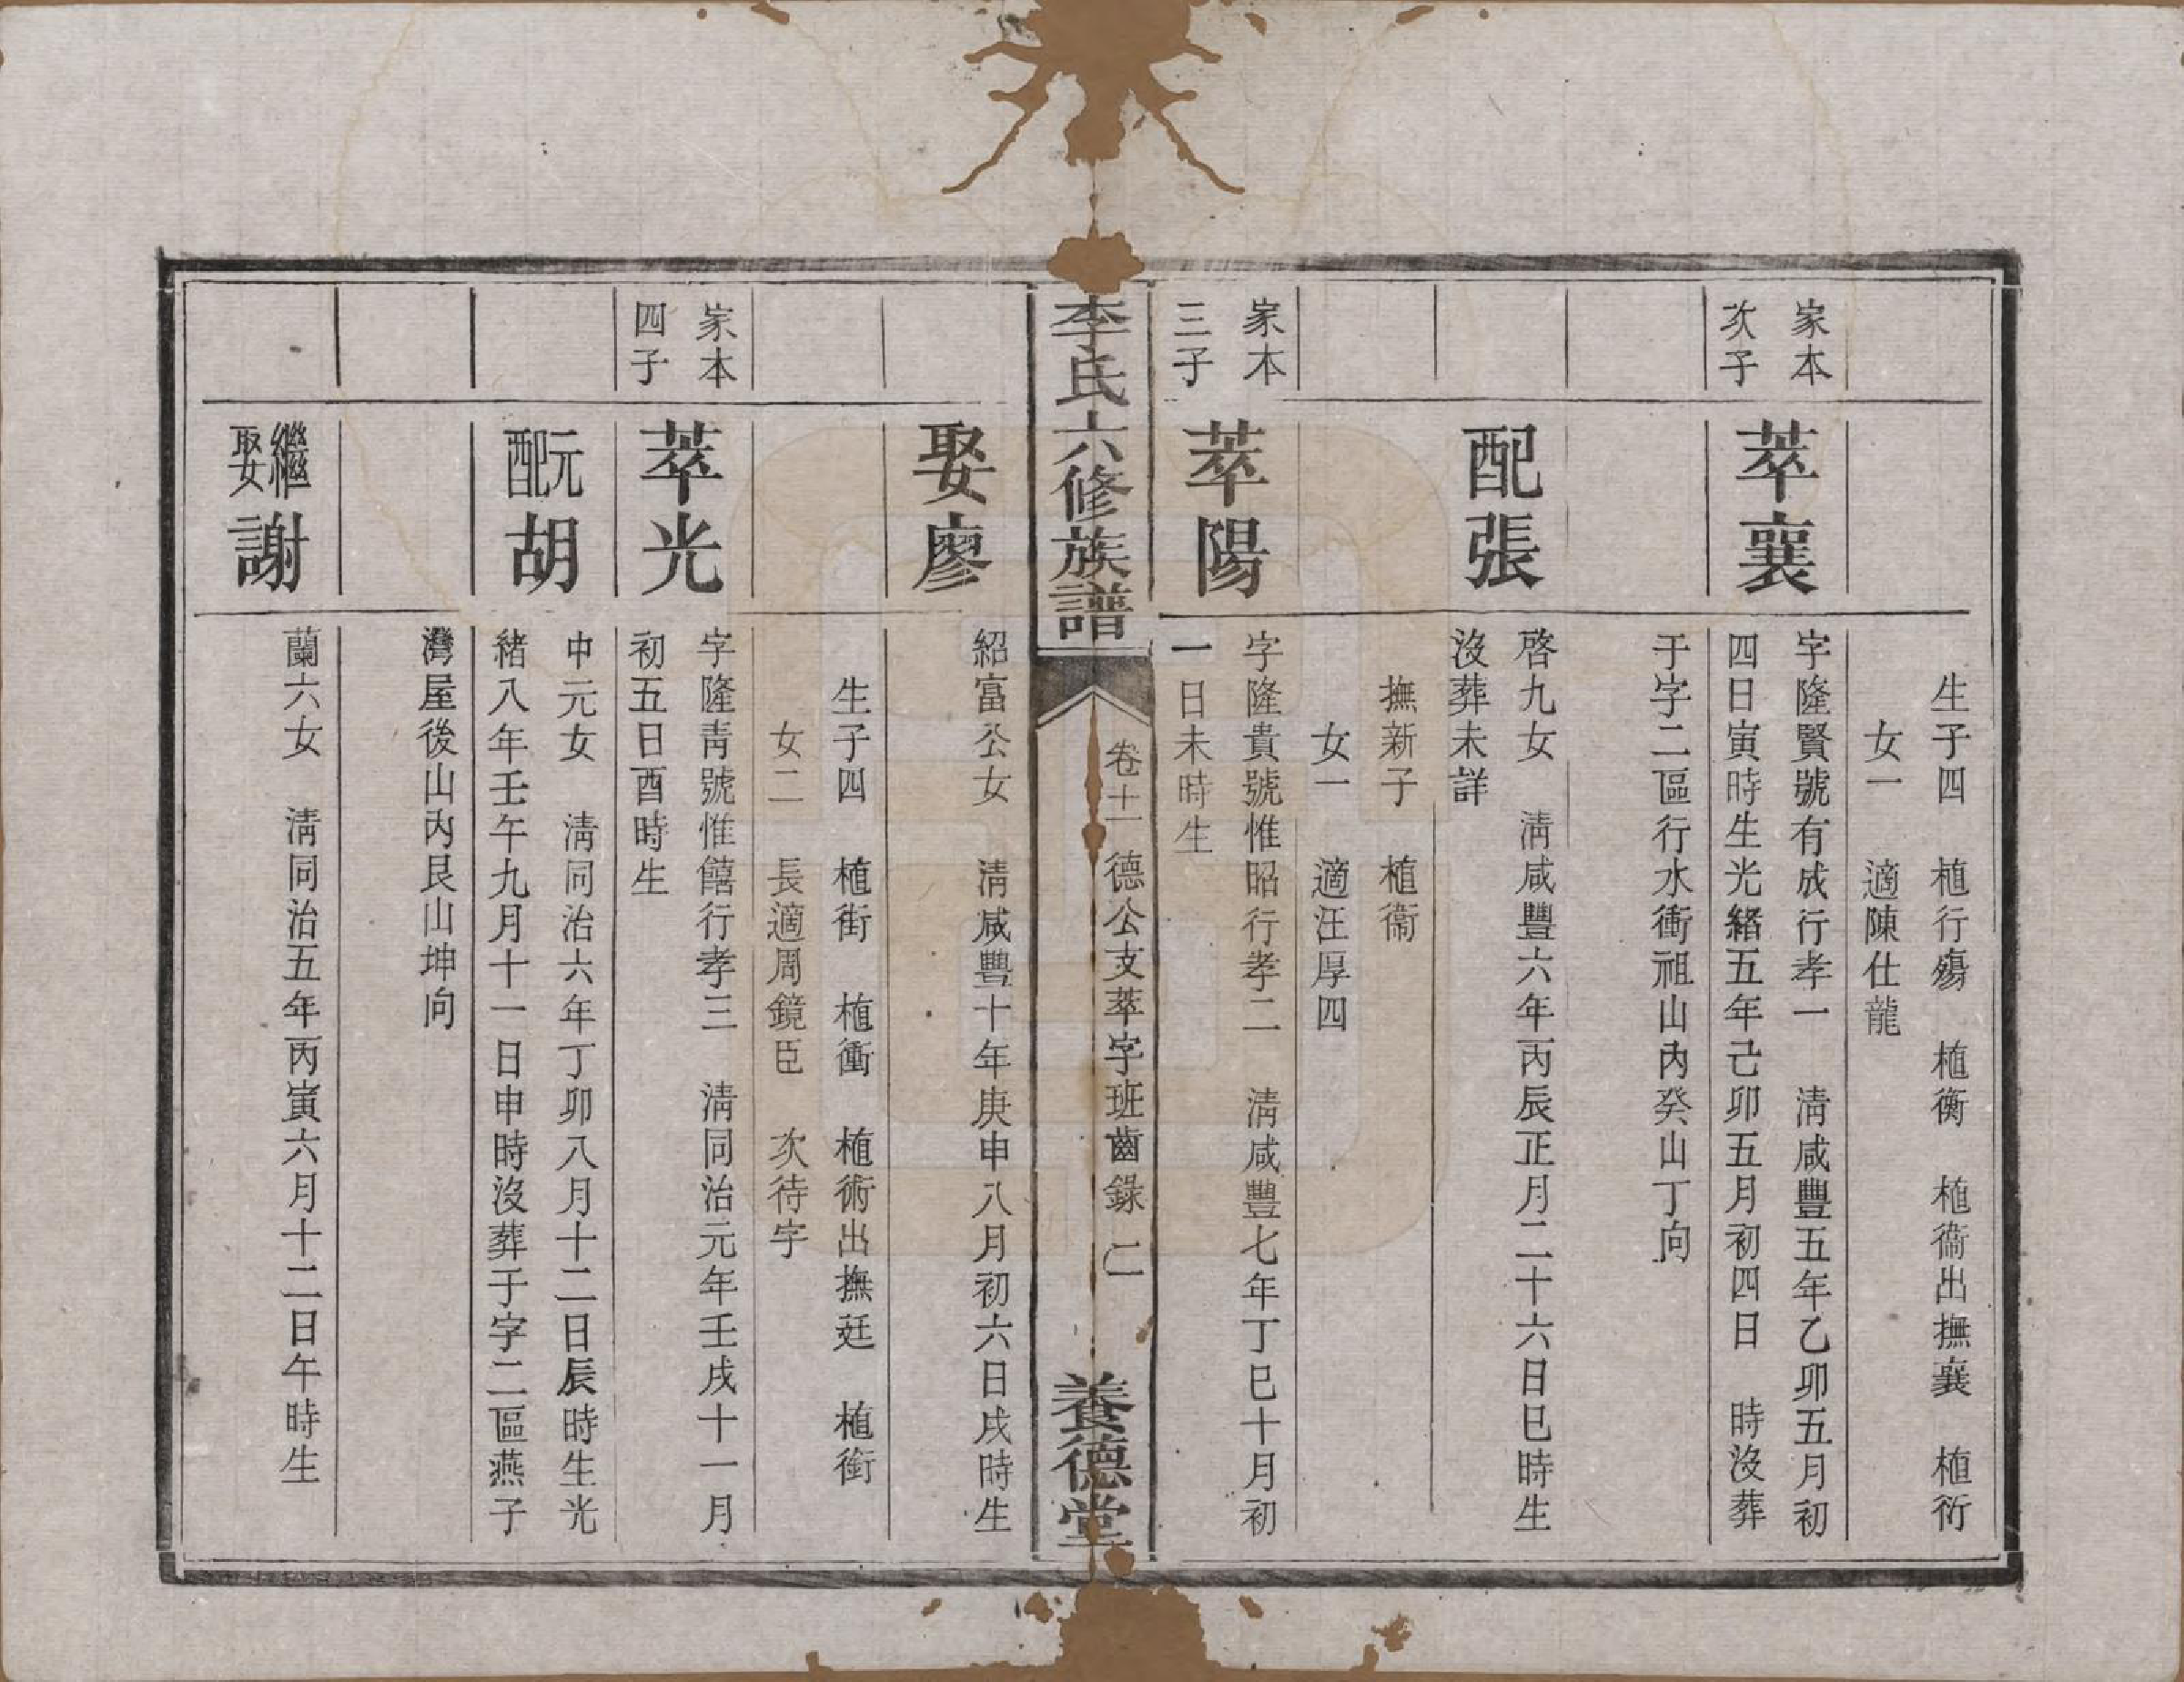 生子四　植行殤　植衡　植衞出撫襄　植衍
女一　適陳仕龍
家本次子
萃襄
字隆賢號有成行孝一　淸咸豐五年乙卯五月初
四日寅時生光緖五年己卯五月初四日　時沒葬
于字二區行水衝祖山內癸山丁向
配張
啓九女　淸咸豐六年丙辰正月二十六日巳時生
沒葬未詳
撫新子　植衞
女一　適汪厚四
家本三子
萃陽
字隆貴號惟昭行孝二　淸咸豐七年丁巳十月初
一日未時生
李氏六修族譜
卷十一　德公支萃字班齒錄　二
養德堂
娶廖
紹富公女　淸咸豐十年庚申八月初六日戌時生
生子四　植街　植衝　植術出撫廷　植銜
女二　長適周鏡臣　次待字
家本四子
萃光
字隆靑號惟饎行孝三　淸同治元年壬戌十一月
初五日酉時生
元配胡
中元女　淸同治六年丁卯八月十二日辰時生光
緖八年壬午九月十一日申時沒葬于字二區燕子
灣屋後山內艮山坤向
繼娶謝
蘭六女　淸同治五年丙寅六月十二日午時生